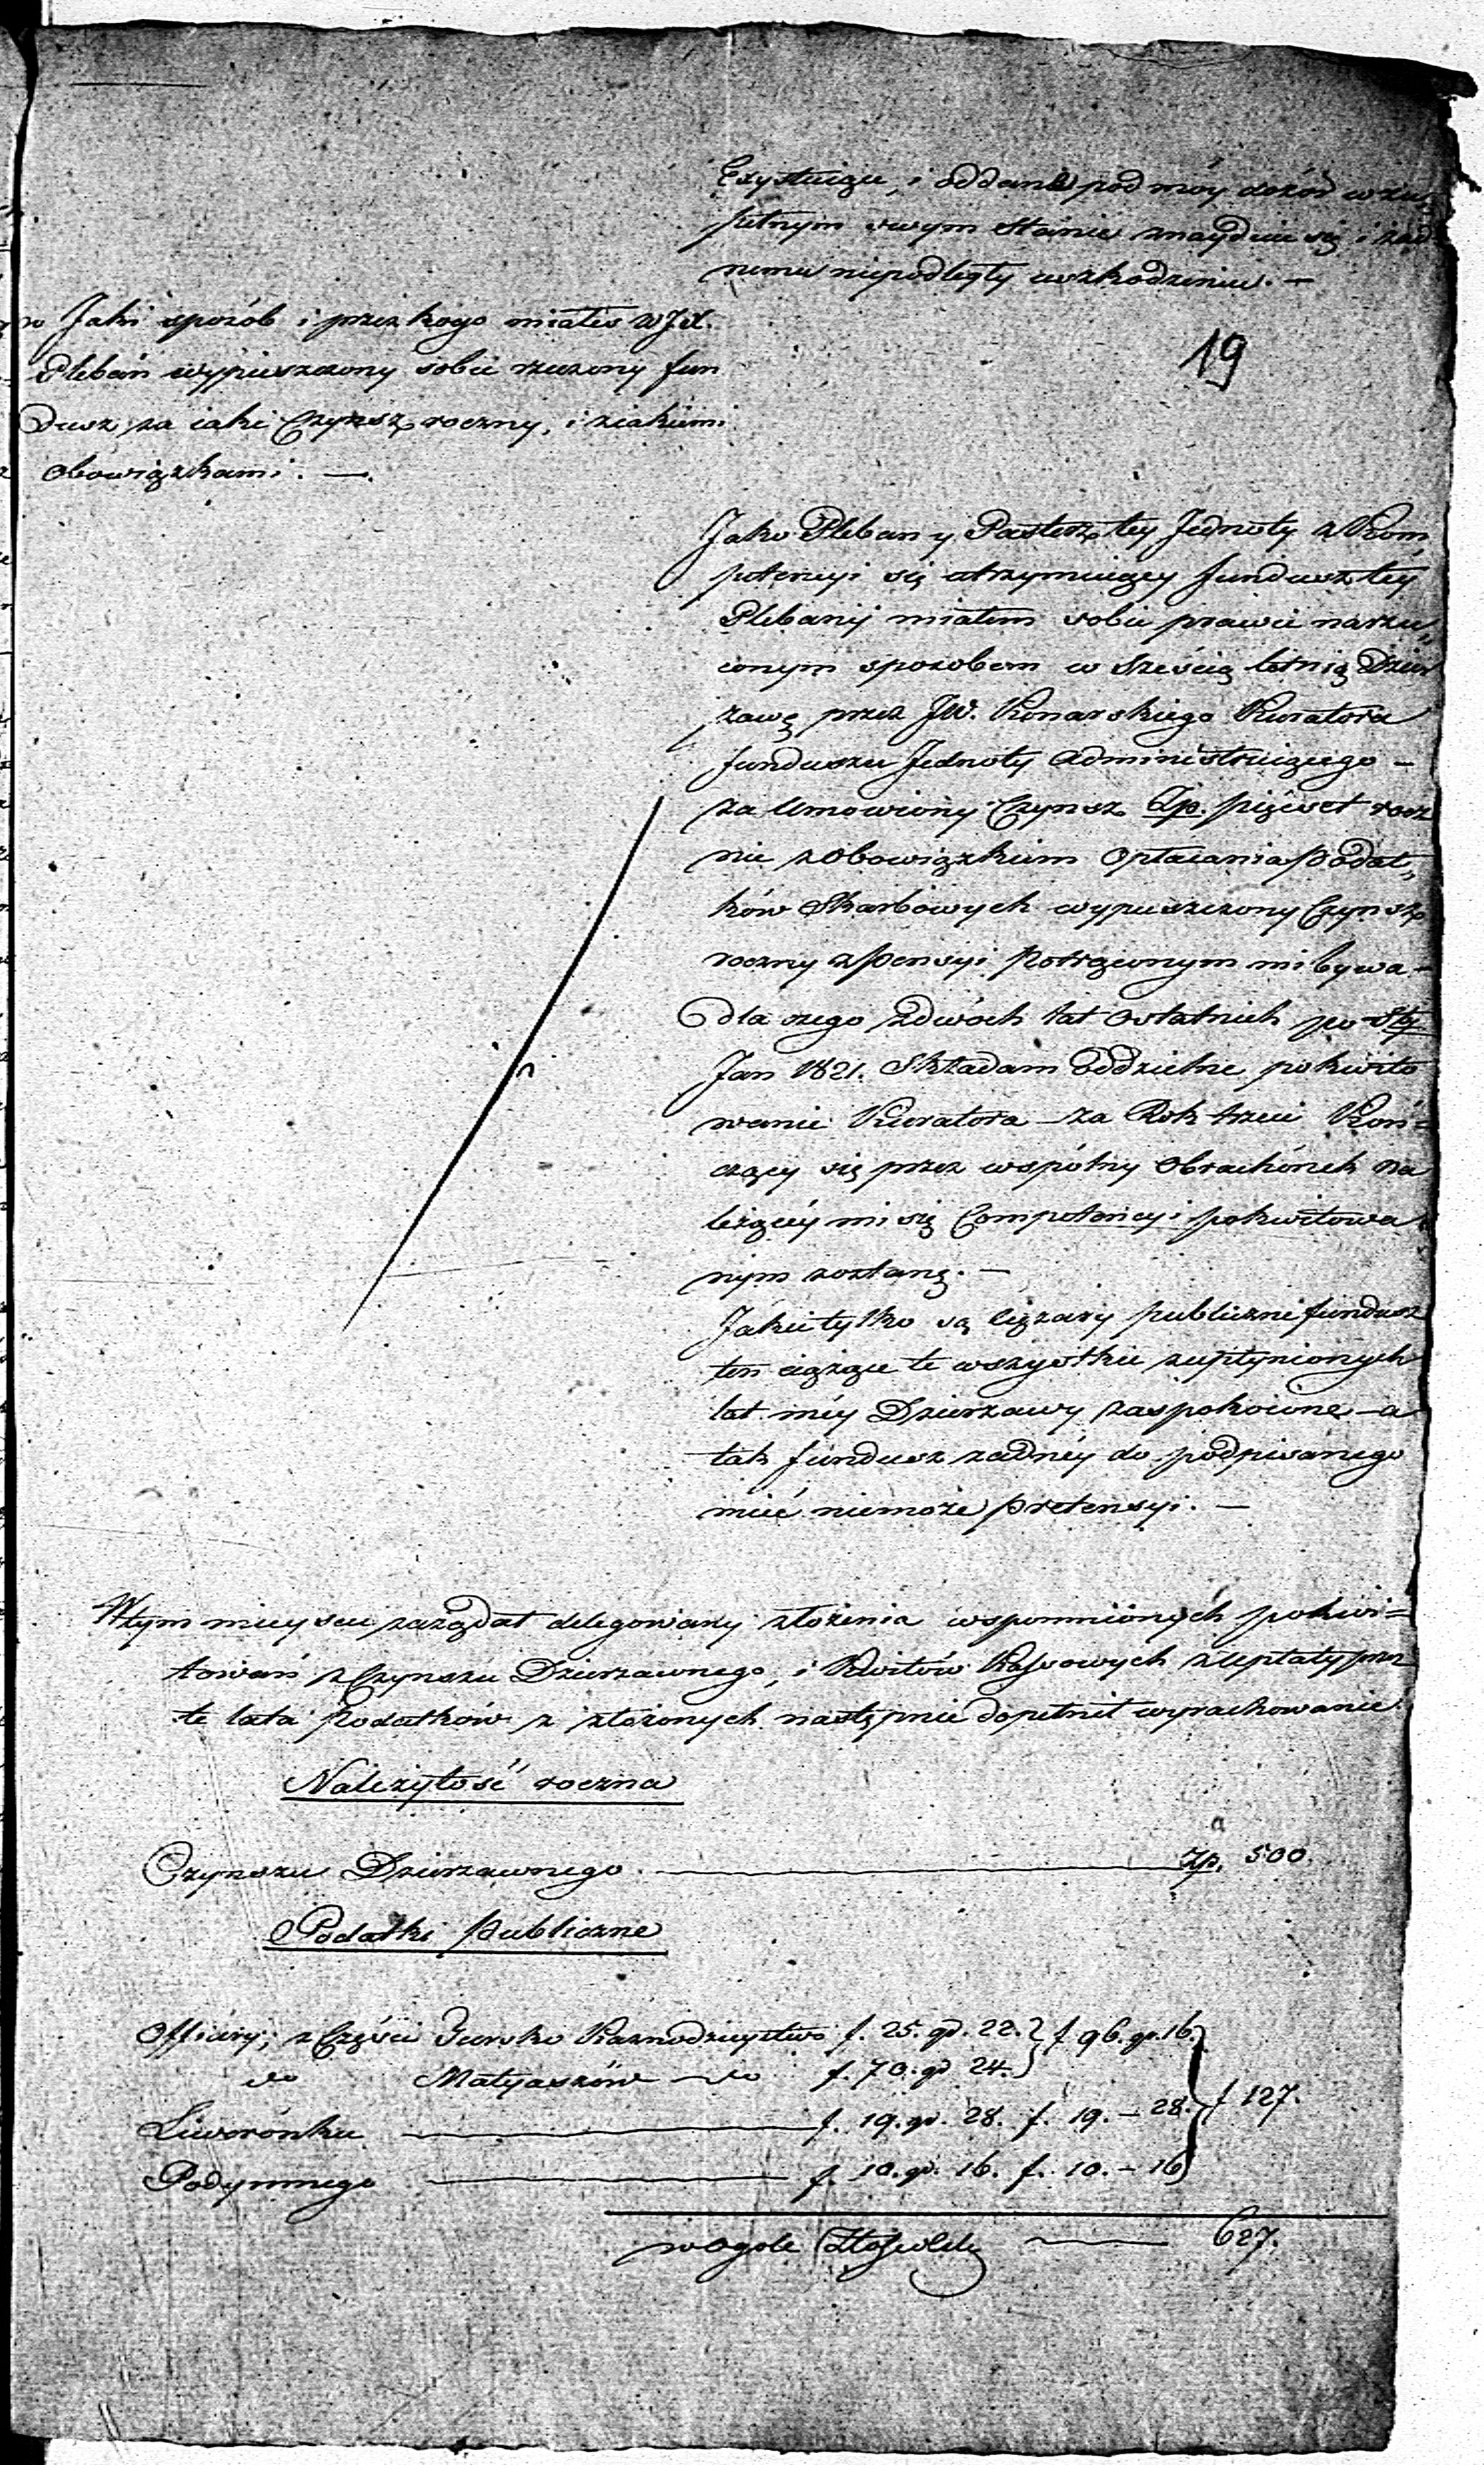 Exystuiące, i oddane pod móy dozór w zu„
pełnym swym stanie znayduie się i żad
nemu niepodległy uszkodzeniu. —
19
w Jaki sposób i przez kogo miałeś WJX.
Pleban wypuszczony sobie rzeczony fun
dusz za iaki Czynsz roczny, i z iakiemi
obowiązkami. —
Jako Pleban y Pasterz tey Jednoty z Kom
petencyi się utrzymuiący fundusz tey
Plebanij miałem sobie prawie narzu„
conym sposobem w sześcią letnią Dzier
zawę przez JW. Konarskiego Kuratora
funduszu Jednoty administruiącego —
za umowiony Czynsz Zp. pięćset rocz
nie z obowiązkiem opłacania podat„
ków Skarbowych wypuszczony Czynsz
roczny z pensyi potrąconym mi bywa —
dla czego z dwóch lat ostatnich po Sty
Jan 1821. Składam oddzielne pokwito
wanie Kuratora — za Rok trzeci Koń=
czący się przez wspólny obrachónek na
leżącéy mi się Competencyi pokwitowa
nym zostanę. —
Jakie tylko są ciężary publiczne fundusz
ten ciążące te wszystkie z upłynionych
lat méy Dzierzawy zaspokoione — a
tak fundusz zadnéy do podpisanego
mieć niemoże pretensyi. —
W tym mieyscu zażądał delegowany złożenia wspomnionych pokwi=
towań z Czynszu Dzierzawnego, i Kwitów Kassowych z upłaty przez
te lata Podatków z złożonych następnie dopełnił wyrachowanie.
Należytość roczna
Czynszu Dzierzawnego. — Zp. 500.
Podatki publiczne
Offiary; z Części Kaznodzieystwo f. 25. gr. 22. } f 96. gr. 16.
do Matyaszów — do f. 70. gr 24.
Liwerónku — f. 19. gr. 28. f. 19. — 28. } f 127.
Podymnego — f. 10. gr. 16. f. 10. — 16
w ogóle — 627.